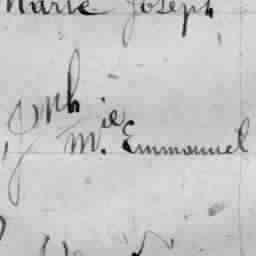 Marie Joseph
Jph M.ie Emmanuel